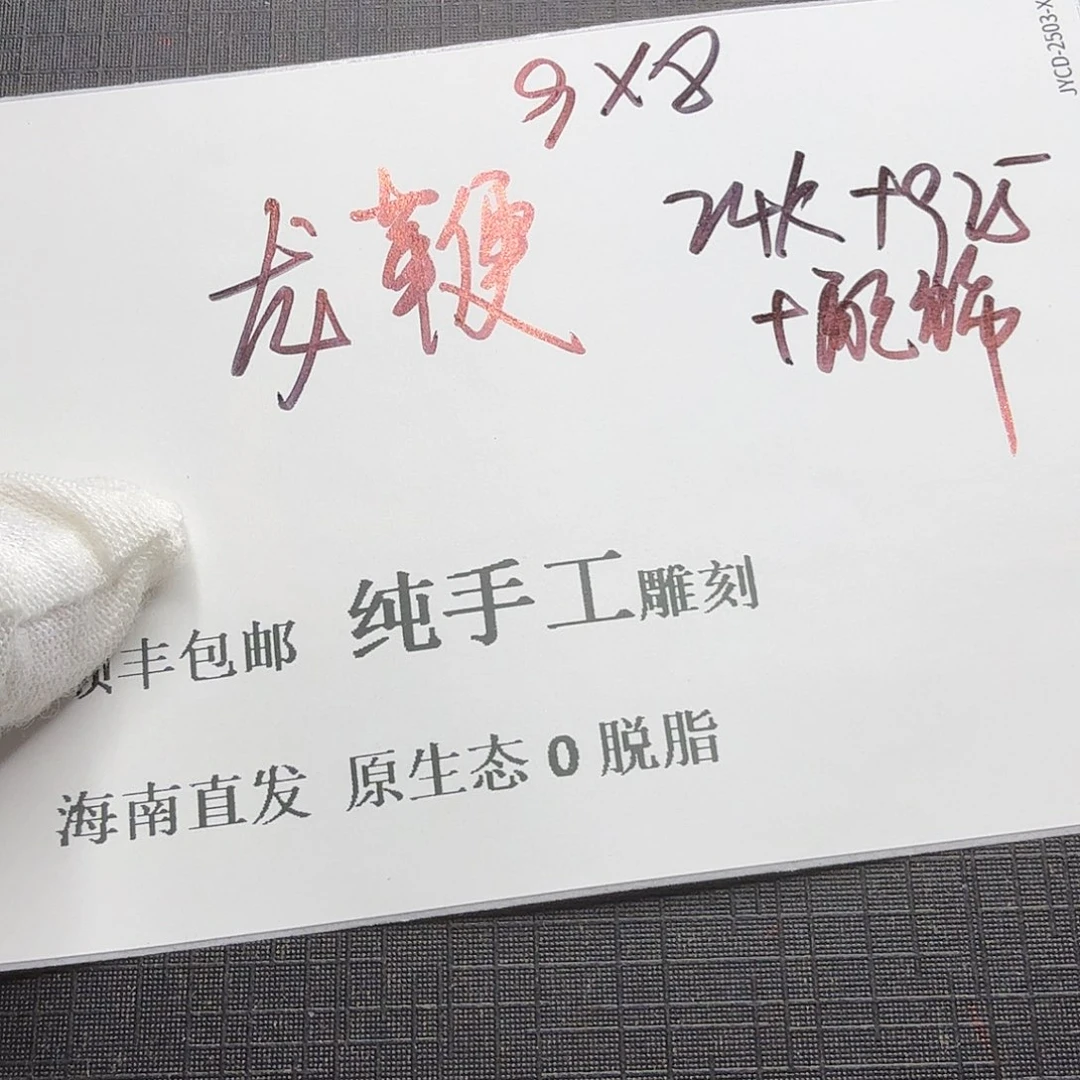 JYCD-2503-X
9×8
龙鞭
24K+925
+配饰
顺丰包邮 纯手工雕刻
海南直发 原生态0脱脂